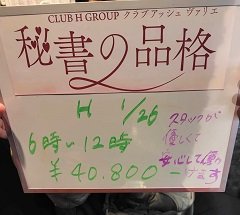 CLUB H GROUP クラブアッシュ ヴァリエ
秘書の品格
H 1/26
6時~12時
¥40.800-
スタッフが
優しくて
安心して働
けます